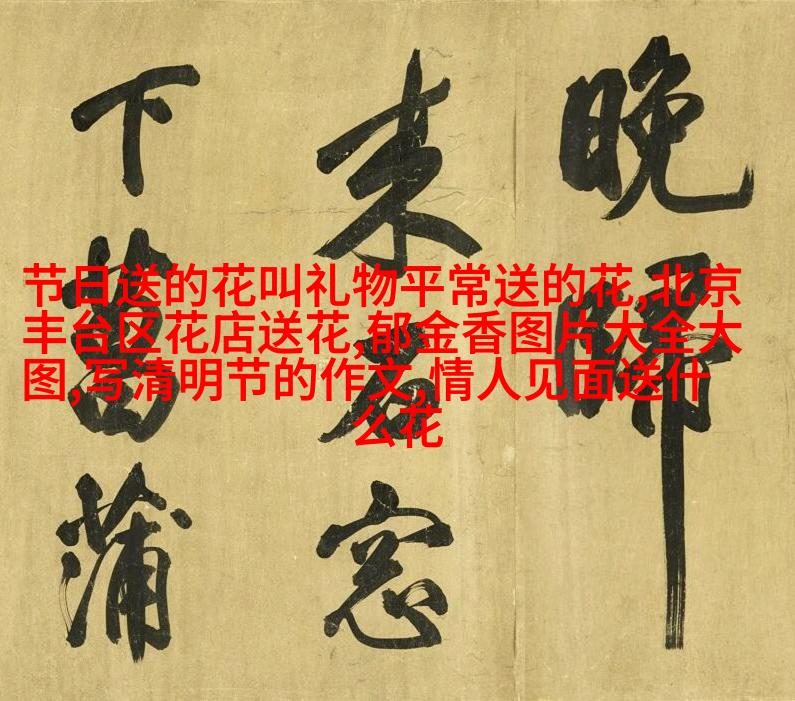 节日送的花叫礼物平常送的花,北京
丰台区花店送花,郁金香图片大全大
图,写清明节的作文,情人见面送什
么花
晚
来 窓
下 蒲